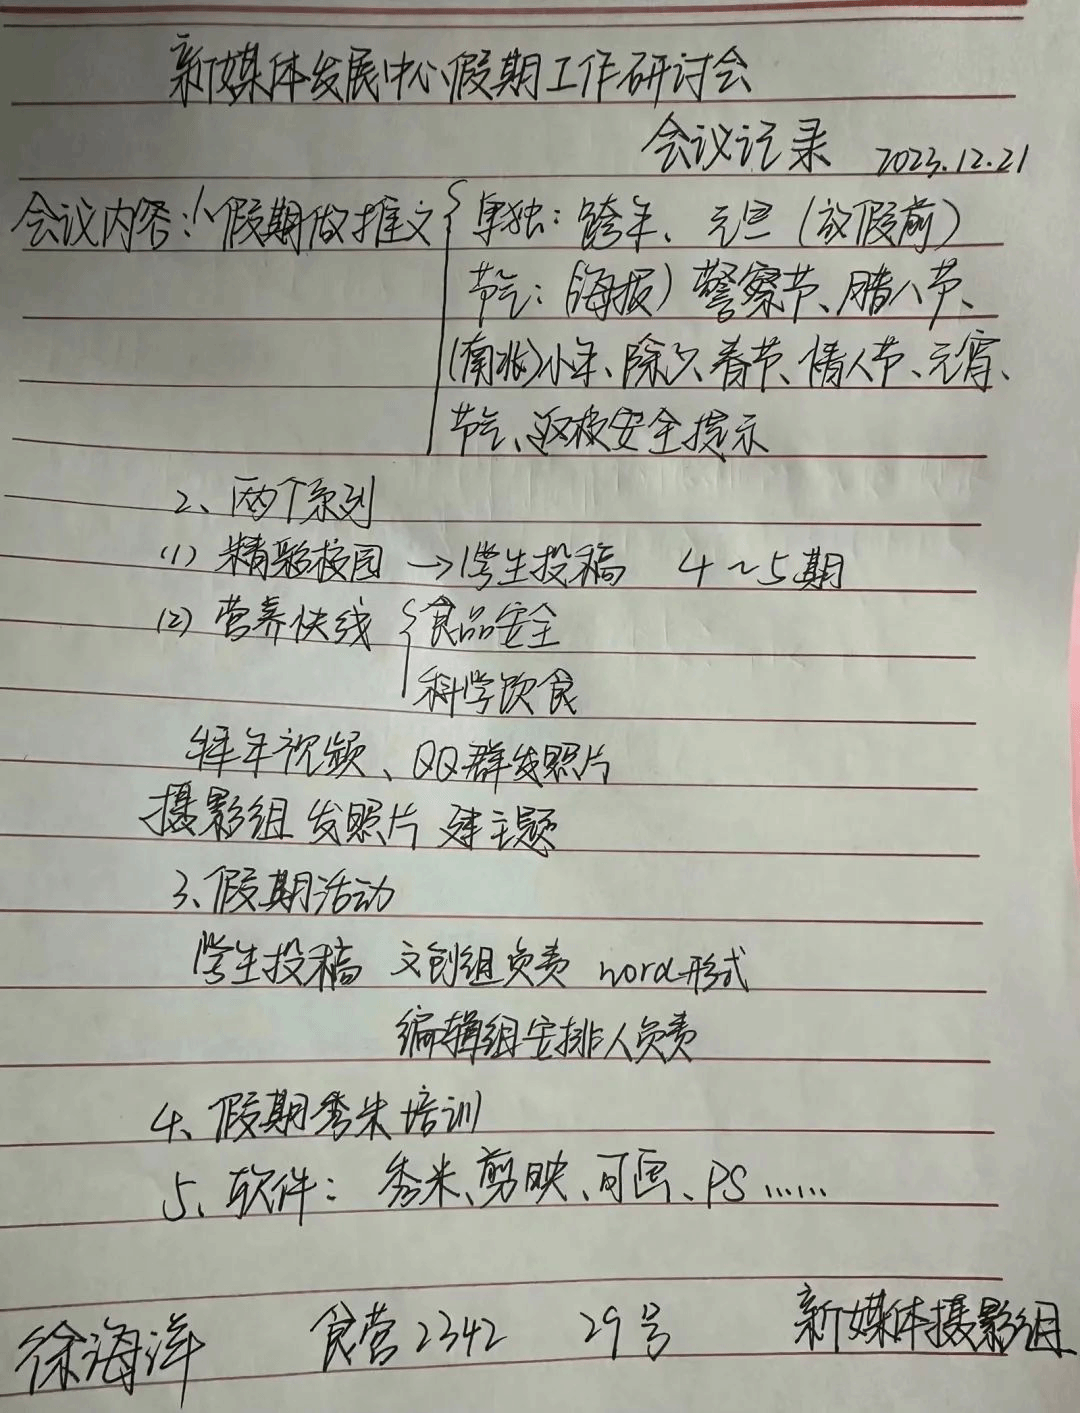 新媒体发展中心假期工作研讨会
会议记录 2023.12.21
会议内容:1、假期做推文{单独:跨年、元旦(放假前)
节气:(海报)警察节、腊八节、
(南北)小年、除夕、春节、情人节、元宵、
节气、返校安全提示
2、两个系列
(1)精彩校园→学生投稿 4~5期
(2)营养快线{食品安全
科学饮食
拜年视频、QQ群发照片
摄影组 发照片 建主题
3、假期活动
学生投稿 文创组负责 word形式
编辑组安排人负责
4、假期秀米培训
5、软件:秀米、剪映、可画、PS……
徐海洋 食营2342 29号 新媒体摄影组